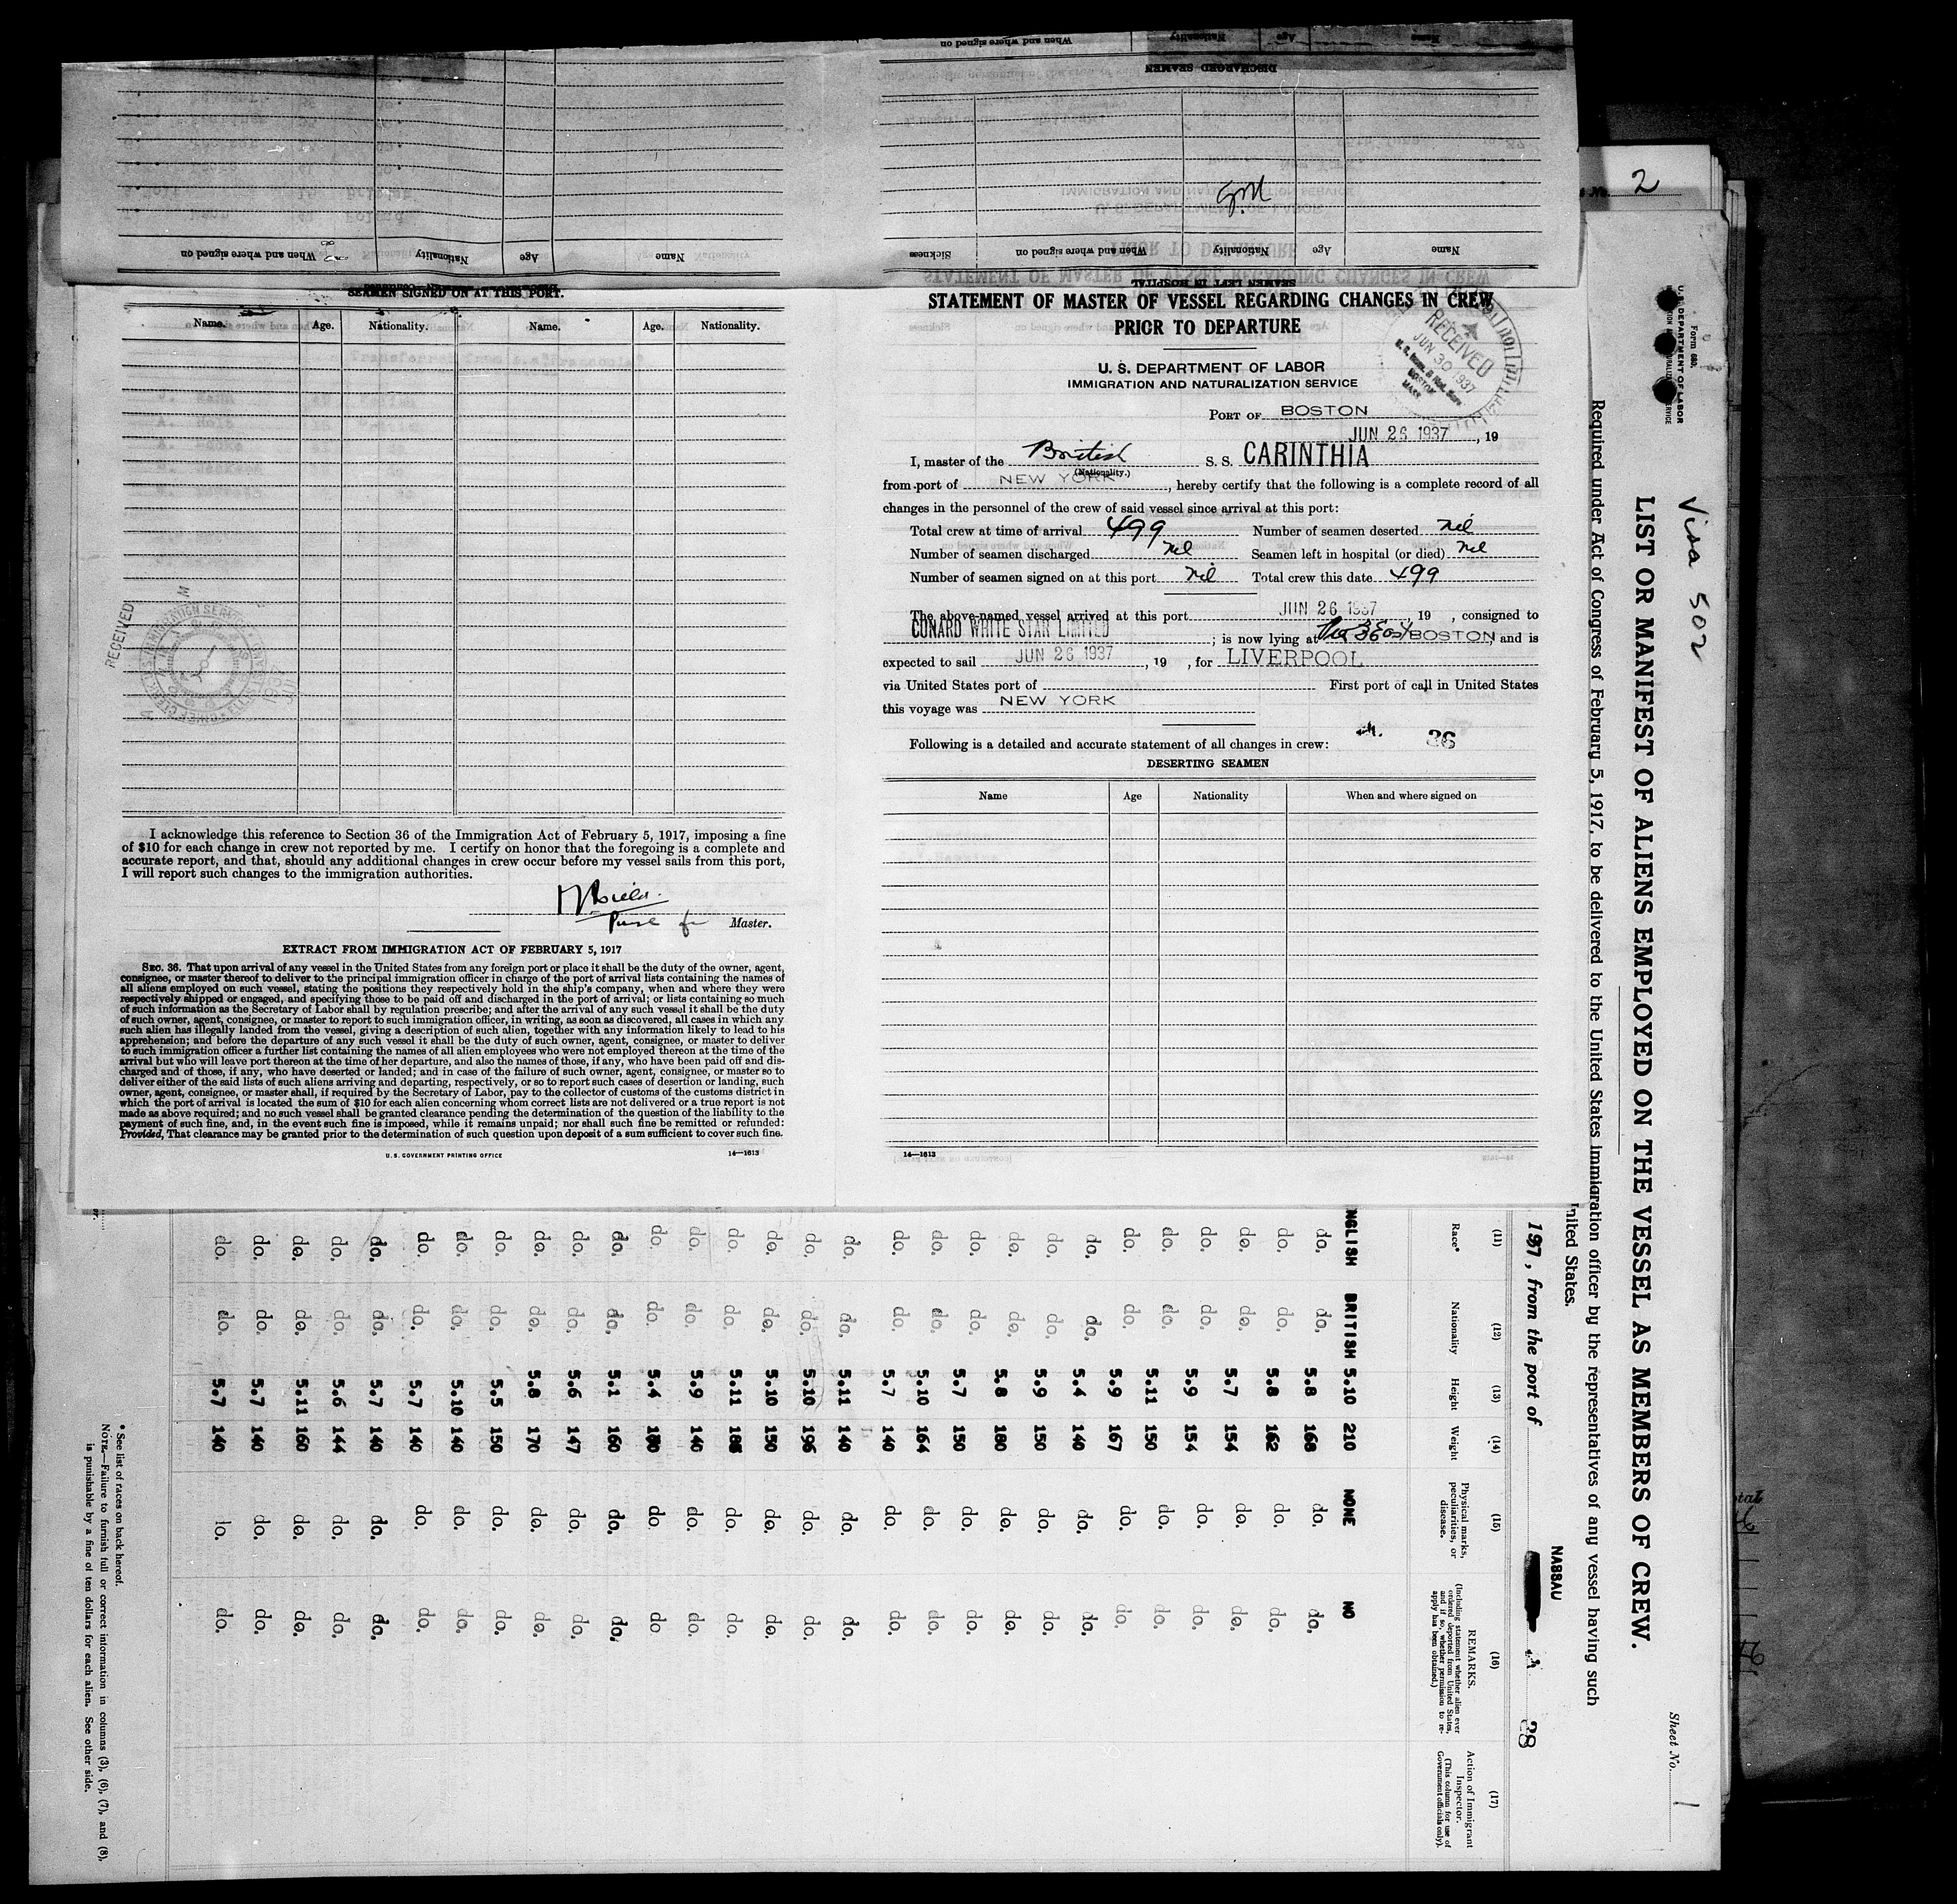 DISCHARGED SEAMEN
Name Age Nationality When and where signed on
Name Age Nationality When and where signed on Sickness
SEAMEN LEFT IN HOSPITAL
No. 2
SEAMEN SIGNED ON AT THIS PORT.
Name. Age. Nationality. Name. Age. Nationality.
RECEIVED
I acknowledge this reference to Section 36 of the Immigration Act of February 5, 1917, imposing a fine
of $10 for each change in crew not reported by me. I certify on honor that the foregoing is a complete and
accurate report, and that, should any additional changes in crew occur before my vessel sails from this port,
I will report such changes to the immigration authorities.
Master.
EXTRACT FROM IMMIGRATION ACT OF FEBRUARY 5, 1917
SEC. 36. That upon arrival of any vessel in the United States from any foreign port or place it shall be the duty of the owner, agent,
consignee, or master thereof to deliver to the principal immigration officer in charge of the port of arrival lists containing the names of
all aliens employed on such vessel, stating the positions they respectively hold in the ship's company, when and where they were
respectively shipped or engaged, and specifying those to be paid off and discharged in the port of arrival; or lists containing so much
of such information as the Secretary of Labor shall by regulation prescribe; and after the arrival of any such vessel it shall be the duty
of such owner, agent, consignee, or master to report to such immigration officer, in writing, as soon as discovered, all cases in which any
such alien has illegally landed from the vessel, giving a description of such alien, together with any information likely to lead to his
apprehension; and before the departure of any such vessel it shall be the duty of such owner, agent, consignee, or master to deliver
to such immigration officer a further list containing the names of all alien employees who were not employed thereon at the time of the
arrival but who will leave port thereon at the time of her departure, and also the names of those, if any, who have been paid off and dis-
charged and of those, if any, who have deserted or landed; and in case of the failure of such owner, agent, consignee, or master so to
deliver either of the said lists of such aliens arriving and departing, respectively, or so to report such cases of desertion or landing, such
owner, agent, consignee, or master shall, if required by the Secretary of Labor, pay to the collector of customs of the customs district in
which the port of arrival is located the sum of $10 for each alien concerning whom correct lists are not delivered or a true report is not
made as above required; and no such vessel shall be granted clearance pending the determination of the question of the liability to the
payment of such fine, and, in the event such fine is imposed, while it remains unpaid; nor shall such fine be remitted or refunded:
Provided, That clearance may be granted prior to the determination of such question upon deposit of a sum sufficient to cover such fine.
U. S. GOVERNMENT PRINTING OFFICE 14—1613
STATEMENT OF MASTER OF VESSEL REGARDING CHANGES IN CREW
PRIOR TO DEPARTURE
U. S. DEPARTMENT OF LABOR
IMMIGRATION AND NATURALIZATION SERVICE
RECEIVED
JUN 30 1937
BOSTON
MASS
PORT OF BOSTON
JUN 26 1937, 19
I, master of the British S. S. CARINTHIA
(Nationality.)
from port of NEW YORK, hereby certify that the following is a complete record of all
changes in the personnel of the crew of said vessel since arrival at this port:
Total crew at time of arrival 499 Number of seamen deserted nil
Number of seamen discharged nil Seamen left in hospital (or died) nil
Number of seamen signed on at this port nil Total crew this date 499
The above-named vessel arrived at this port JUN 26 1937, 19 , consigned to
CUNARD WHITE STAR LIMITED; is now lying at BOSTON, and is
expected to sail JUN 26 1937, 19 , for LIVERPOOL
via United States port of First port of call in United States
this voyage was NEW YORK
Following is a detailed and accurate statement of all changes in crew: 36
DESERTING SEAMEN
Name Age Nationality When and where signed on
14—1613
Form 680
U. S. DEPARTMENT OF LABOR
Visa 502
Sheet No. 1
LIST OR MANIFEST OF ALIENS EMPLOYED ON THE VESSEL AS MEMBERS OF CREW.
Required under Act of Congress of February 5, 1917, to be delivered to the United States immigration officer by the representatives of any vessel having such
United States.
NASSAU
1937, from the port of
28
(11) (12) (13) (14) (15) (16) (17)
Race* Nationality Height Weight Physical marks, peculiarities, or disease. REMARKS. (Including statement whether alien ever ordered deported from United States, and if so, whether permission to re-apply has been obtained.) Action of Immigrant Inspector. (This column for use of Government officials only).
ENGLISH BRITISH 5.10 210 NONE NO
do. do. 5.8 168 do. do.
do. do. 5.8 162 do. do.
do. do. 5.7 154 do. do.
do. do. 5.9 154 do. do.
do. do. 5.11 150 do. do.
do. do. 5.9 167 do. do.
do. do. 5.4 140 do. do.
do. do. 5.9 150 do. do.
do. do. 5.8 180 do. do.
do. do. 5.7 150 do. do.
do. do. 5.10 164 do. do.
do. do. 5.7 140 do. do.
do. do. 5.11 140 do. do.
do. do. 5.10 196 do. do.
do. do. 5.10 150 do. do.
do. do. 5.11 do. do.
do. do. 5.9 140 do. do.
do. do. 5.4 do. do
do. do. 5.1 160 do. do.
do. do. 5.6 147 do. do.
do. do. 5.8 170 do. do.
do. do. 5.5 150 do. do.
do. do. 5.10 140 do. do.
do. do. 5.7 140 do. do.
do. do. 5.7 140 do. do.
do. do. 5.6 144 do. do.
do. do. 5.11 160 do. do.
do. do. 5.7 140 do. do.
do. do. 5.7 140 lo. do.
* See list of races on back hereof.
NOTE.—Failure to furnish full or correct information in columns (3), (6), (7), and (8),
is punishable by a fine of ten dollars for each alien. See other side.